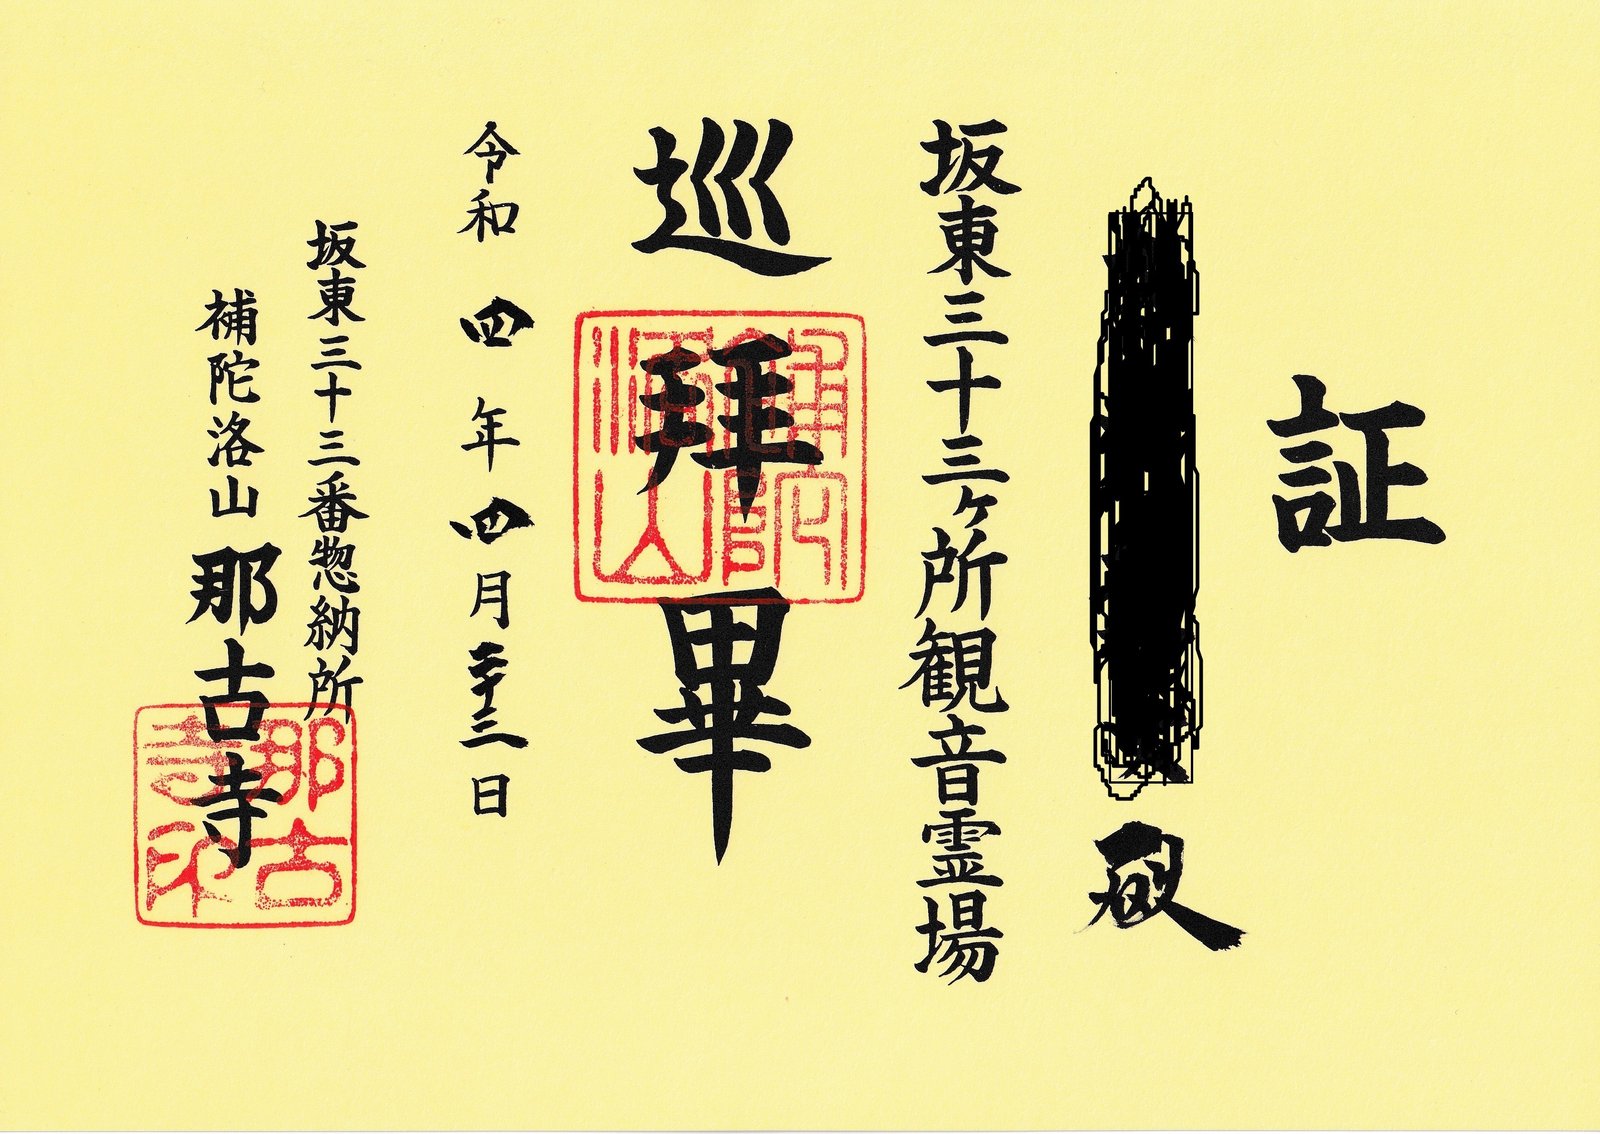 証
殿
坂東三十三ヶ所観音霊場
巡拜畢
令和四年四月二十三日
坂東三十三番惣納所
補陀洛山那古寺
那古寺印